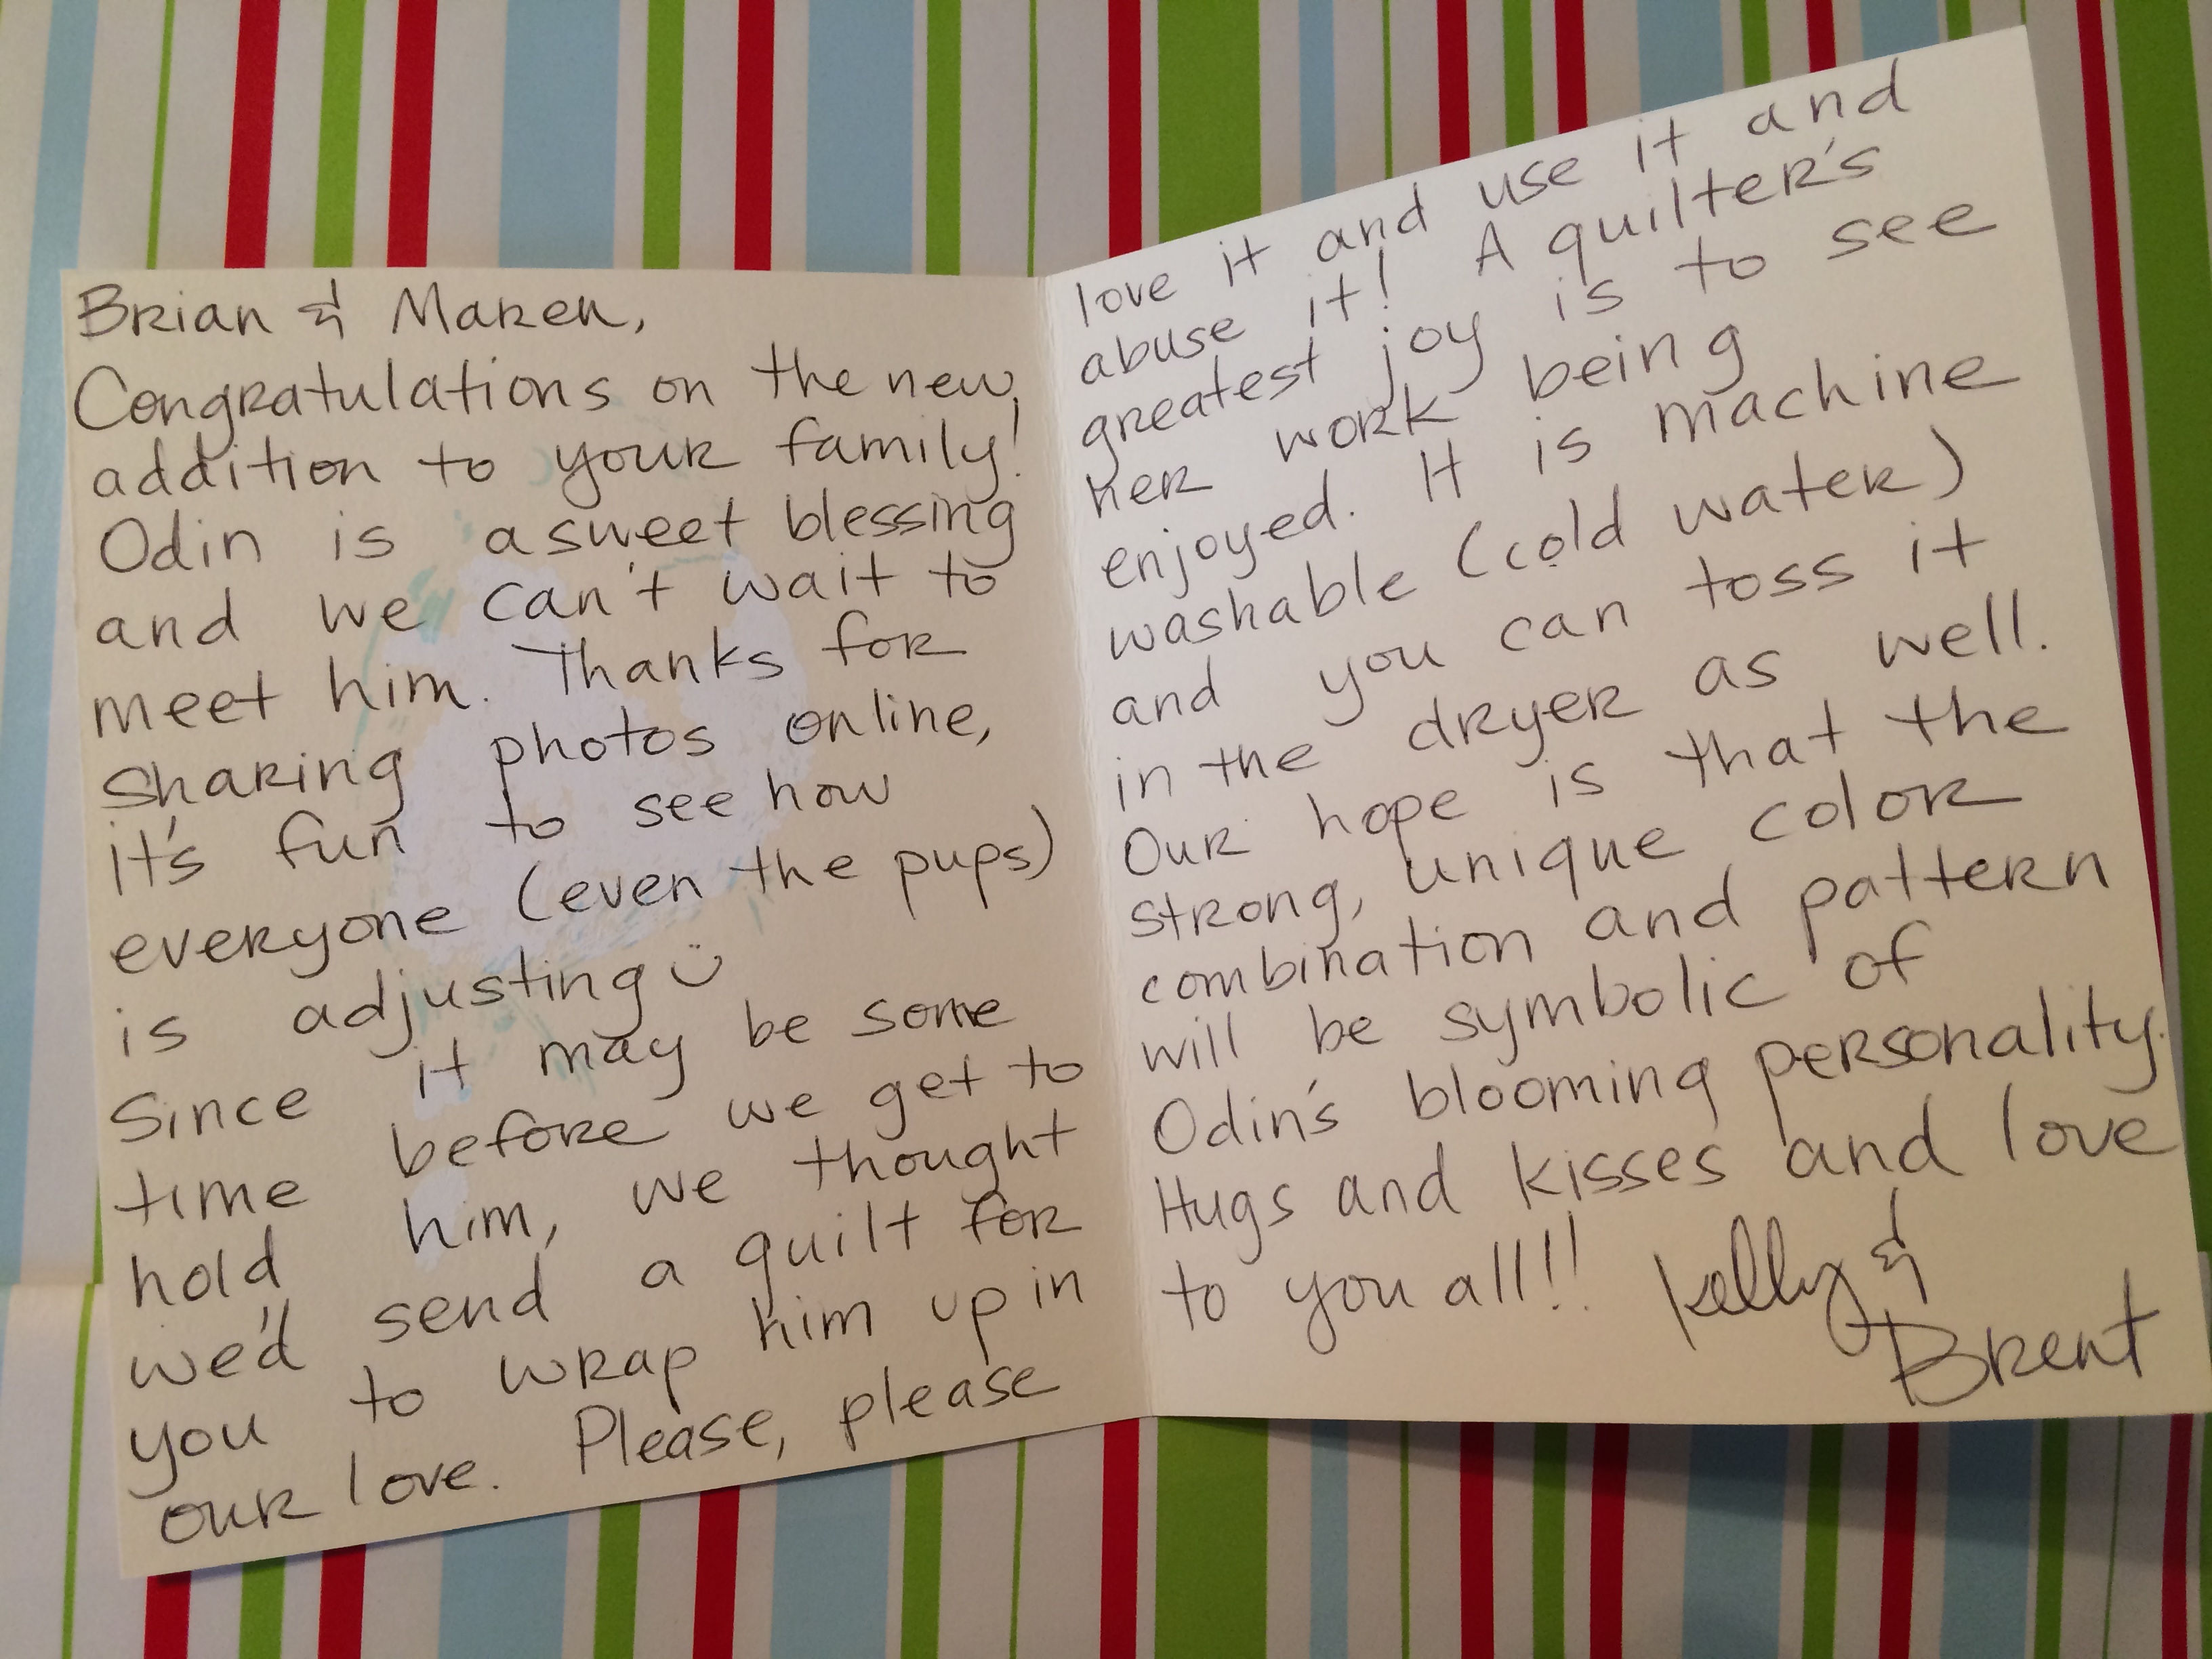 Brian & Maren,
Congratulations on the new
addition to your family!
Odin is a sweet blessing
and we can't wait to
meet him. Thanks for
sharing photos online,
it's fun to see how
everyone (even the pups)
is adjusting ☺
Since it may be some
time before we get to
hold him, we thought
we'd send a quilt for
you to wrap him up in
our love. Please, please
love it and use it and
abuse it! A quilter's
greatest joy is to see
her work being
enjoyed. It is machine
washable (cold water)
and you can toss it
in the dryer as well.
Our hope is that the
strong, unique color
combination and pattern
will be symbolic of
Odin's blooming personality.
Hugs and kisses and love
to you all!!! Kelly &
Brent